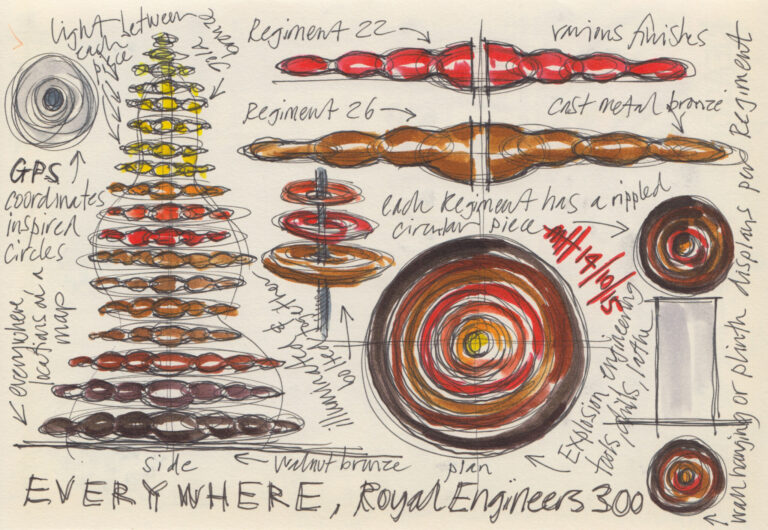 light between
each
piece
Regiment 22
various finishes
Regiment 26
cast metal bronze
GPS
coordinates
inspired
circles
each Regiment has a rippled
circular piece
14/10/15
everywhere
locations on a
map
illuminated
Explosion, engineering
tools, drills, lathe
wall hanging or plinth displays per Regiment
side
walnut bronze
plan
EVERYWHERE, Royal Engineers 300